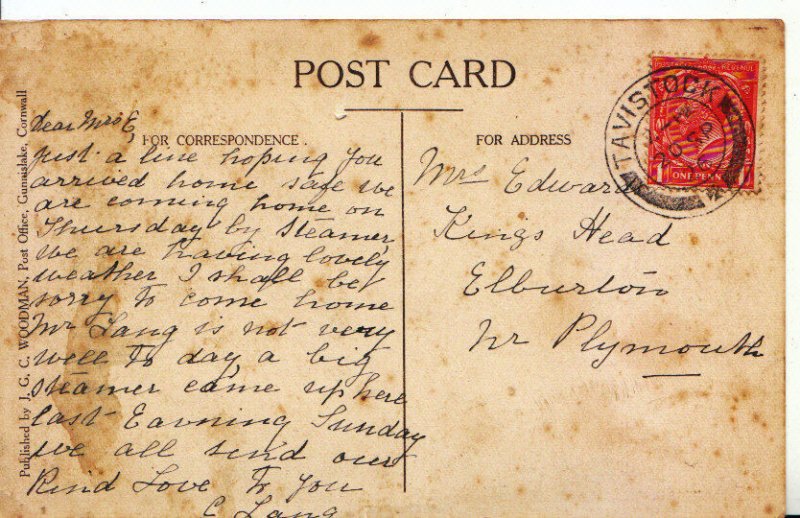 POST CARD
FOR CORRESPONDENCE.
FOR ADDRESS
Published by J. G. C. WOODMAN, Post Office, Gunnislake, Cornwall
Dear Mrs E,
just a line hoping you
arrived home safe we
are coming home on
Thursday by steamer,
we are having lovely
weather I shall be
sorry to come home
Mr Lang is not very
well to day, a big
steamer came up here
last Eavning Sunday
we all send our
Kind Love to you
C Lang
Mrs Edward
Kings Head
Elburton
Nr Plymouth
TAVISTOCK
SP
POSTAGE REVENUE
ONE PENNY